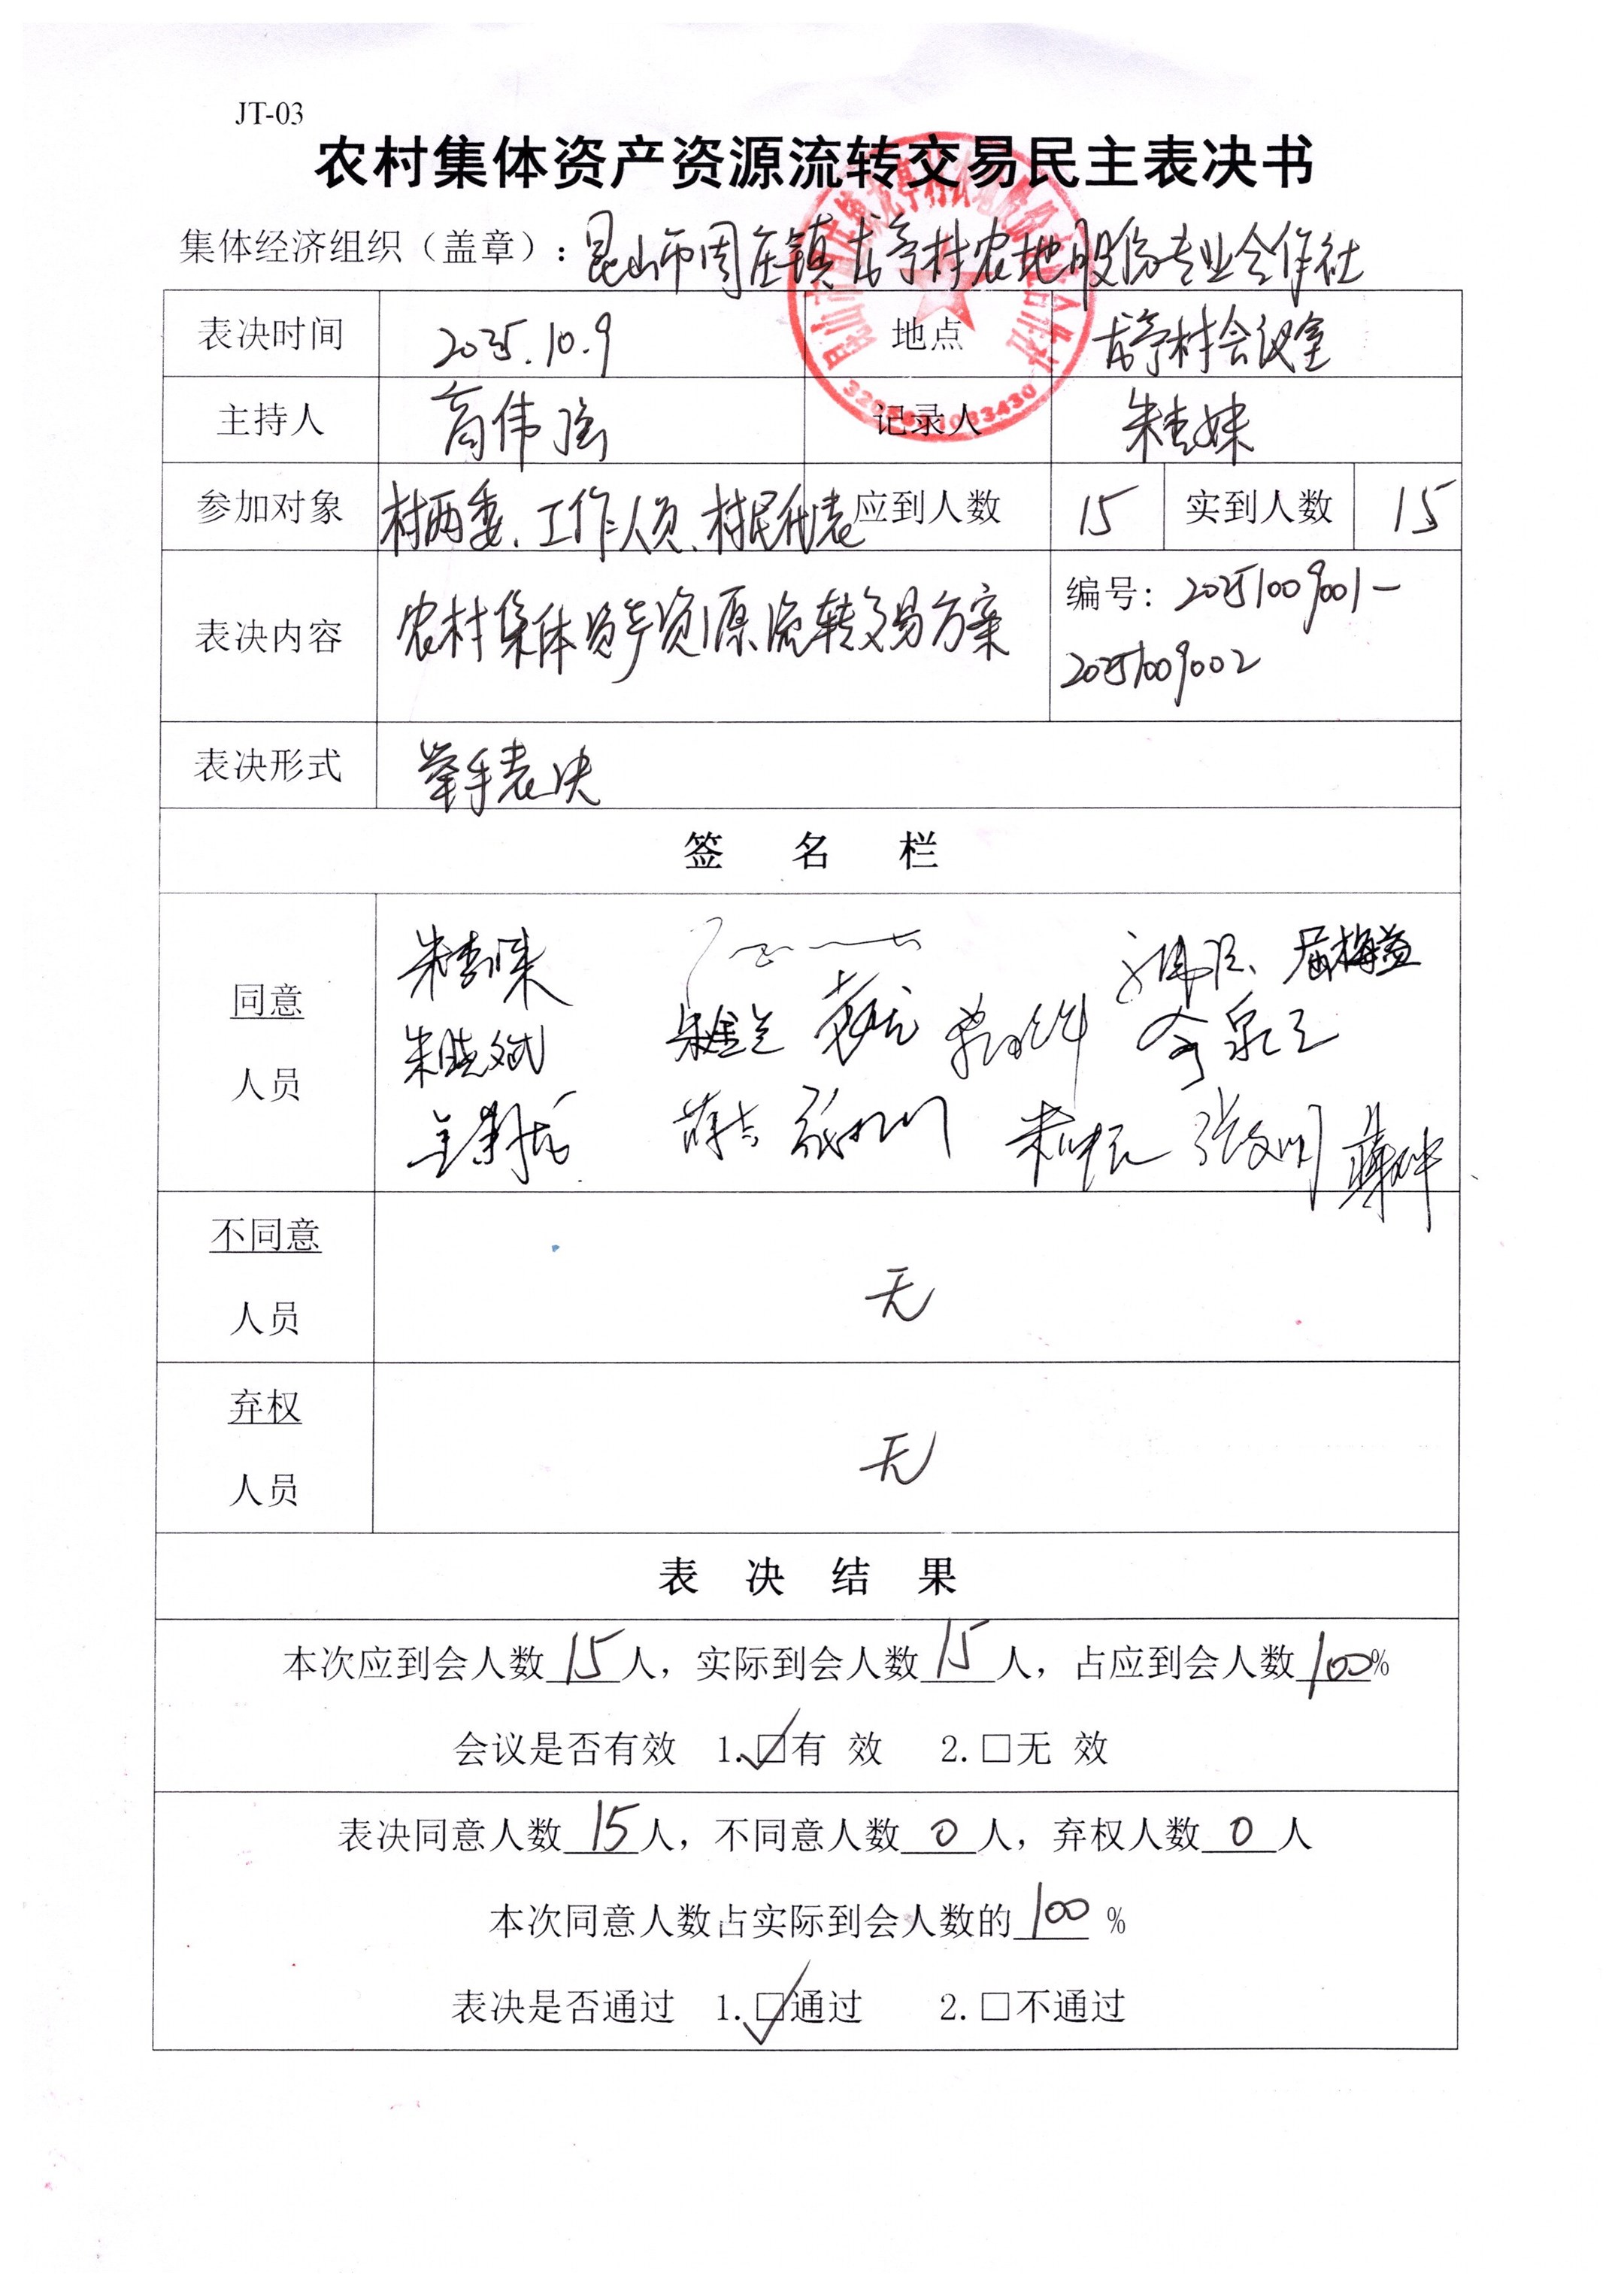 JT-03
农村集体资产资源流转交易民主表决书
集体经济组织（盖章）：昆山市周庄镇龙亭村农地股份专业合作社
表决时间 2025.10.9 地点 龙亭村会议室
主持人 高伟强 记录人 朱李妹
参加对象 村两委、工作人员、村民代表 应到人数 15 实到人数 15
表决内容 农村集体资产资源流转交易方案 编号：20251009001-
20251009002
表决形式 举手表决
签 名 栏
同意
人员
朱晓斌 朱金兰
张文明
不同意
人员
无
弃权
人员
无
表 决 结 果
本次应到会人数15人，实际到会人数15人，占应到会人数100%
会议是否有效 1.☑有 效 2.□无 效
表决同意人数15人，不同意人数0人，弃权人数0人
本次同意人数占实际到会人数的100%
表决是否通过 1.☑通过 2.□不通过